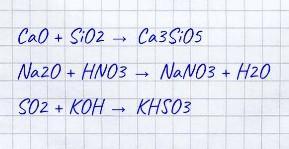 CaO + SiO2 → Ca3SiO5
Na2O + HNO3 → NaNO3 + H2O
SO2 + KOH → KHSO3